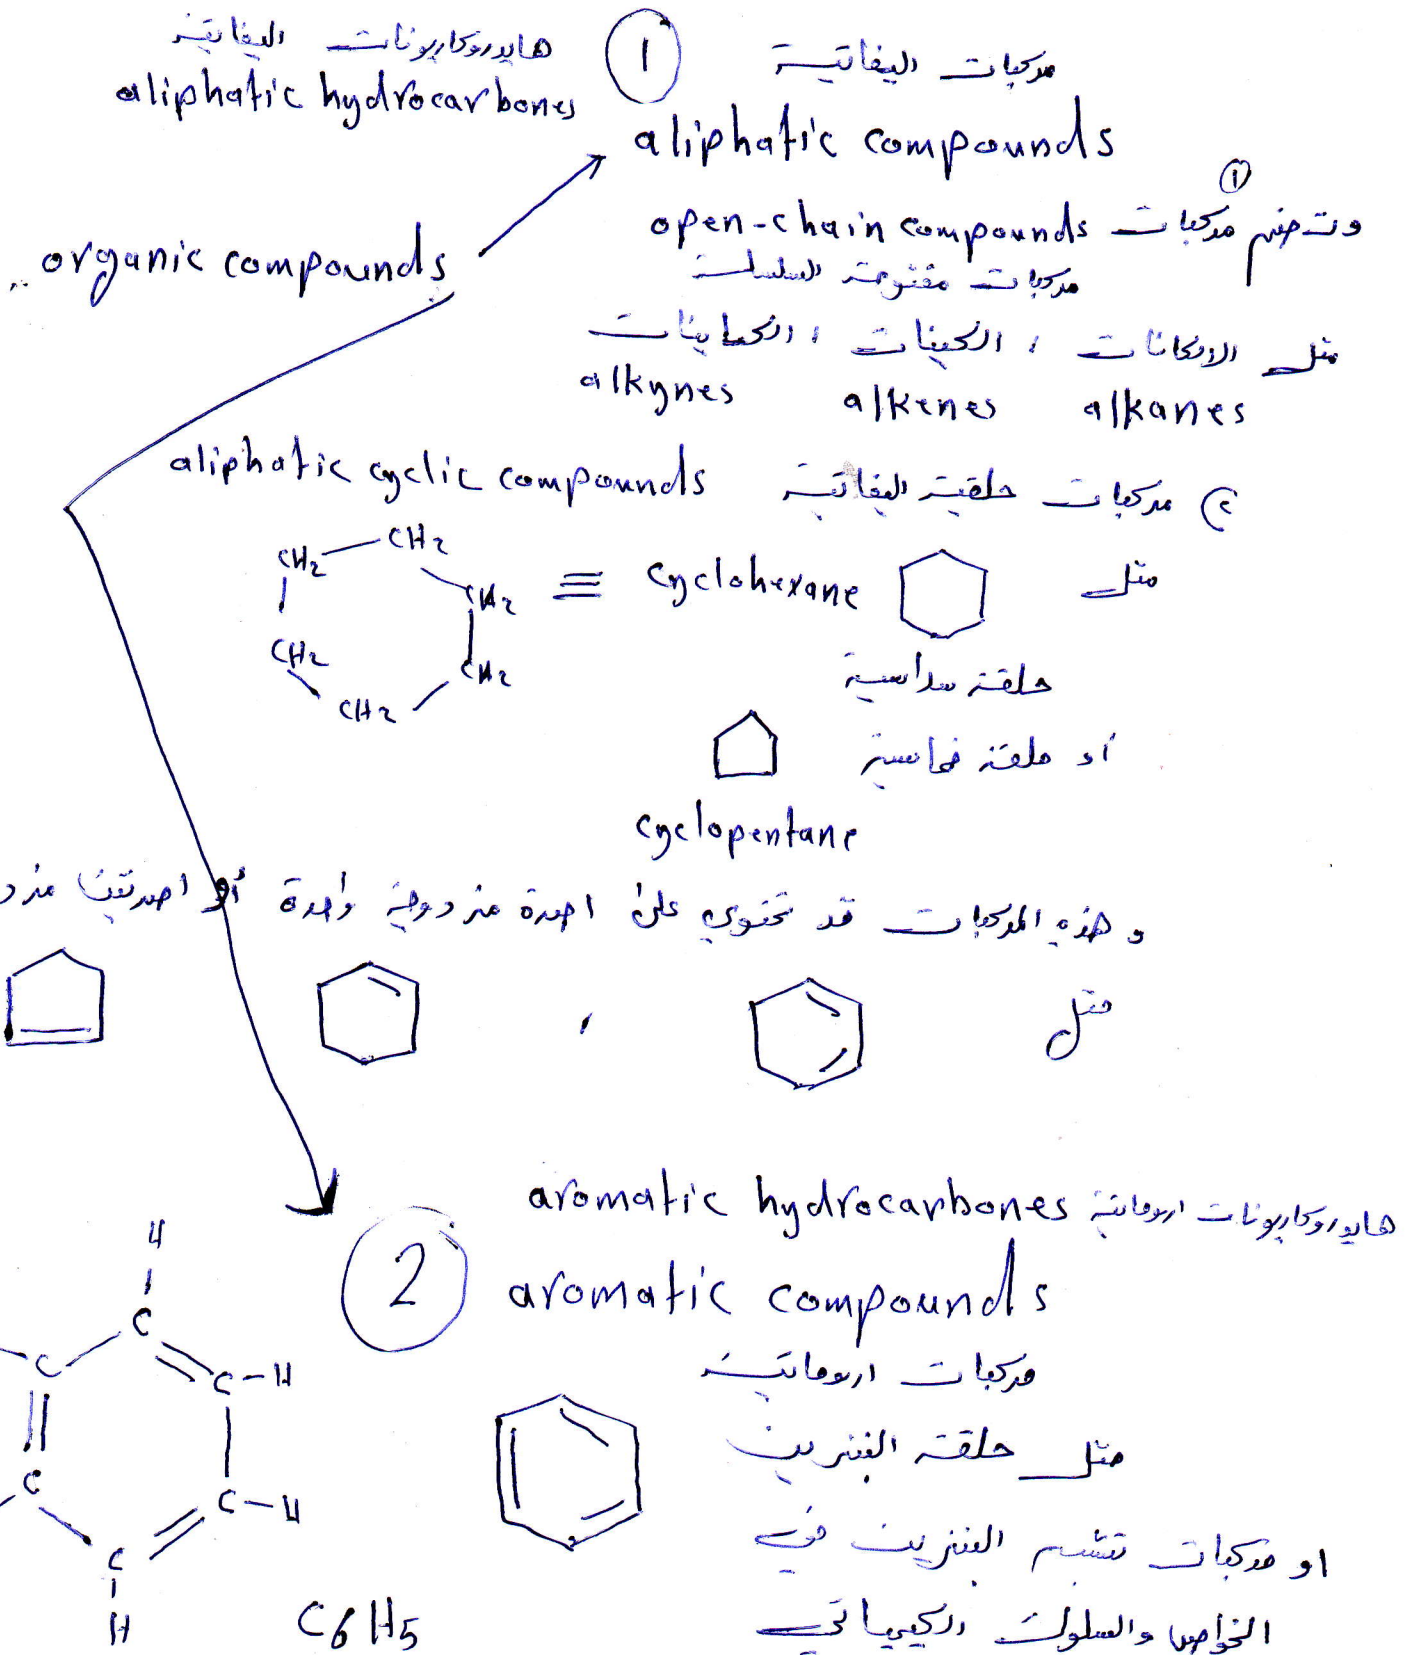 هايدروكاربونات اليفاتية
aliphatic hydrocarbones
1
مركبات اليفاتية
aliphatic compounds
organic compounds
①
وتضم مركبات open-chain compounds
مركبات مفتوحة السلسلة
مثل الالكانات ، الكينات ، الكاينات
alkynes alkenes alkanes
٢) مركبات حلقية اليفاتية aliphatic cyclic compounds
CH2 CH2
CH2
CH2
CH2
CH2
≡ cyclohexane
مثل
حلقة سداسية
أو حلقة خماسية
cyclopentane
وهذه المركبات قد تحتوي على اصرة مزدوجة واحدة أو اصرتين
مثل
،
هايدروكاربونات اروماتية aromatic hydrocarbones
2
aromatic compounds
مركبات اروماتية
مثل حلقة البنزين
او مركبات تشبه البنزين في
الخواص والسلوك الكيميائي
H
C
C C-H
C C-H
C
H
C6H5